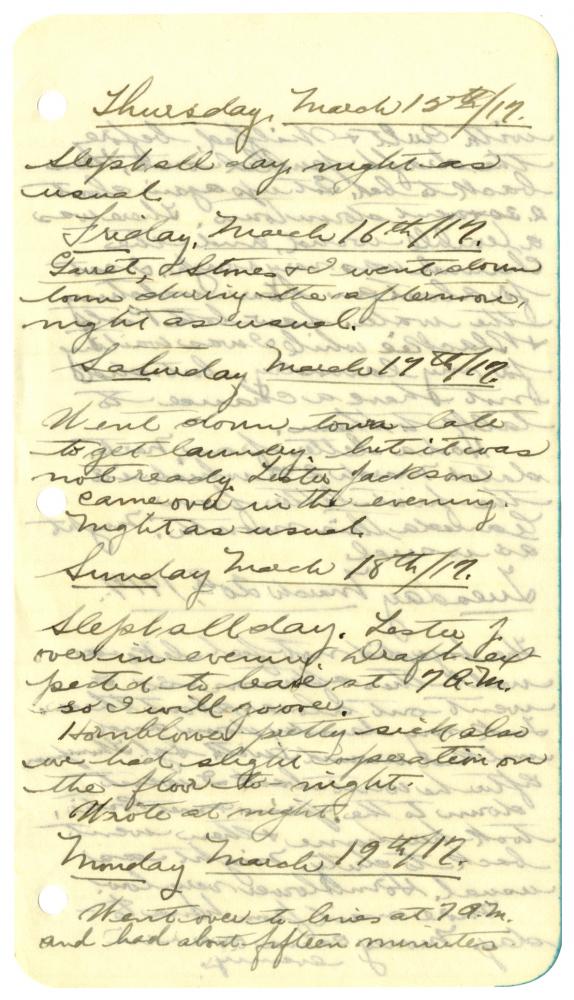 Thursday, March 15th/17.
Slept all day, night as
usual.
Friday, March 16th/17.
Garret, Stones & I went down
town during the afternoon,
night as usual.
Saturday March 17th/17.
Went down town late
to get laundry, but it was
not ready. Lester Jackson
came over in the evening.
Night as usual.
Sunday March 18th/17.
Slept all day. Lester J.
over in evening. Draft ex
pected to leave at 7 A.M.
so I will go over.
Hornblower pretty sick also
we had slight operation on
the floor to-night.
Wrote at night.
Monday March 19th/17.
Went over to lines at 7 A.M.
and had about fifteen minutes